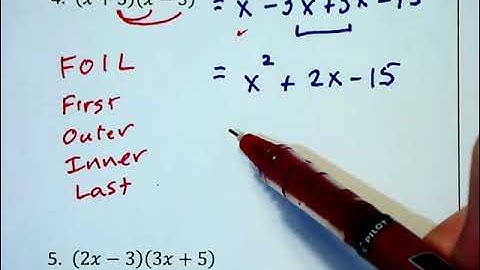 4. (x + 5)(x − 3) = x² − 3x + 5x − 15
FOIL
= x² + 2x − 15
First
Outer
Inner
Last
PILOT
5. (2x − 3)(3x + 5)